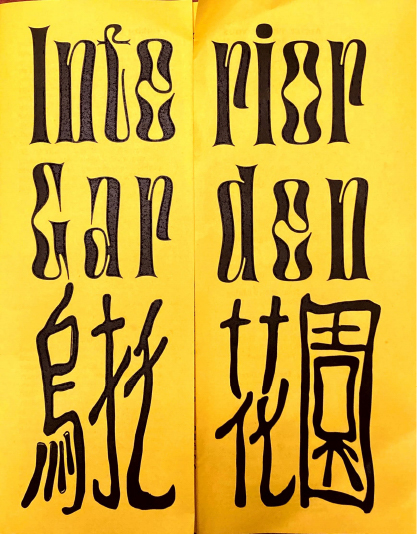 Inte rior
Gar den
烏托花園